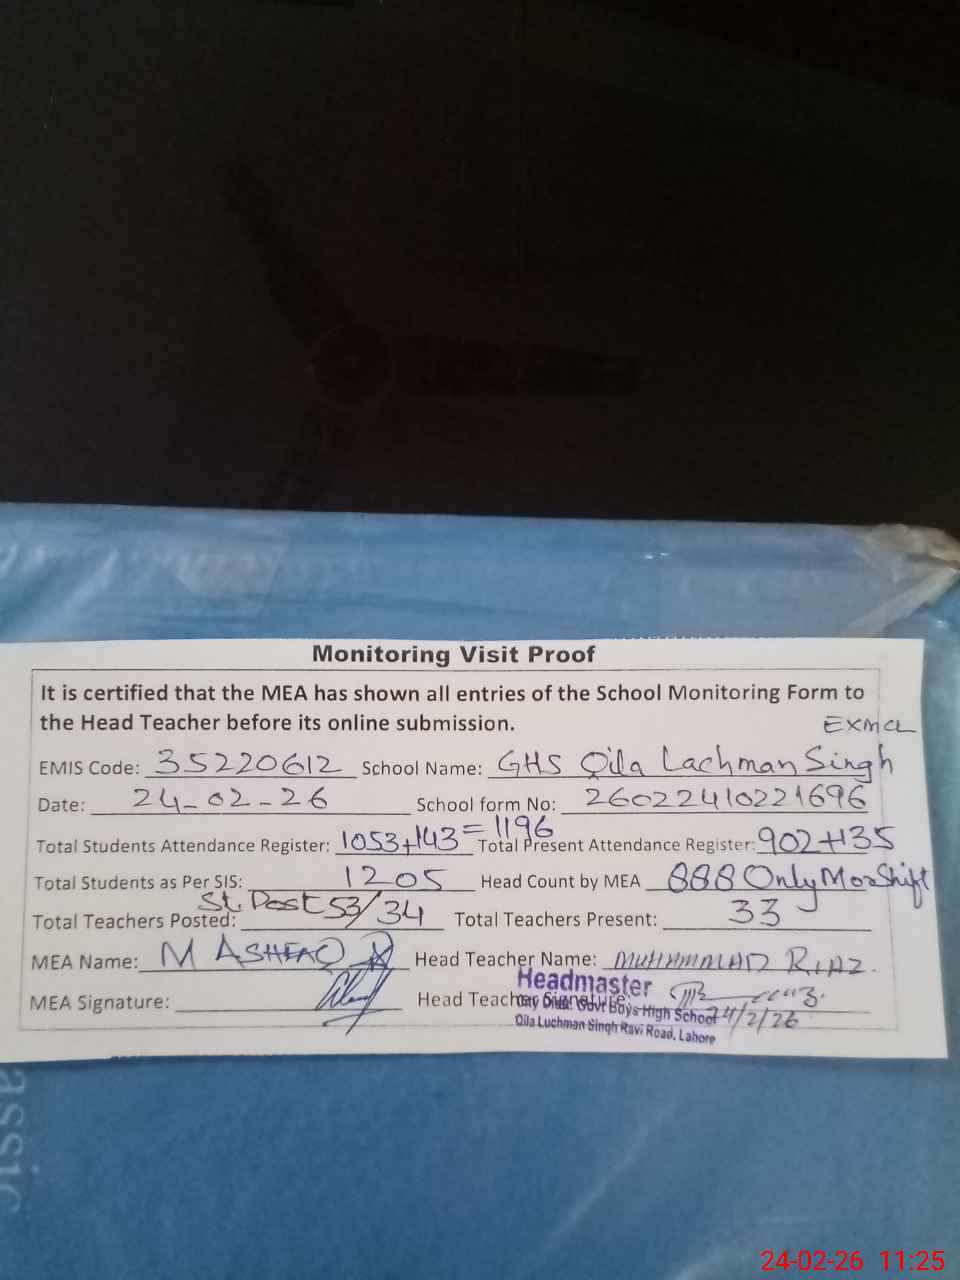 Monitoring Visit Proof
It is certified that the MEA has shown all entries of the School Monitoring Form to
the Head Teacher before its online submission.
EXMCL
EMIS Code: 35220612 School Name: GHS Qila Lachman Singh
Date: 24-02-26 School form No: 26022410221696
Total Students Attendance Register: 1053+143=1196 Total Present Attendance Register: 902+135
Total Students as Per SIS: 1205 Head Count by MEA 888 Only Mor Shift
Total Teachers Posted: St. Post 53/34 Total Teachers Present: 33
MEA Name: M ASHFAQ Head Teacher Name: MUHAMMAD RIAZ.
MEA Signature: Head Teacher Signature:
Headmaster
Govt Boys High School
24/2/26
Qila Luchman Singh Ravi Road, Lahore
assic
24-02-26 11:25